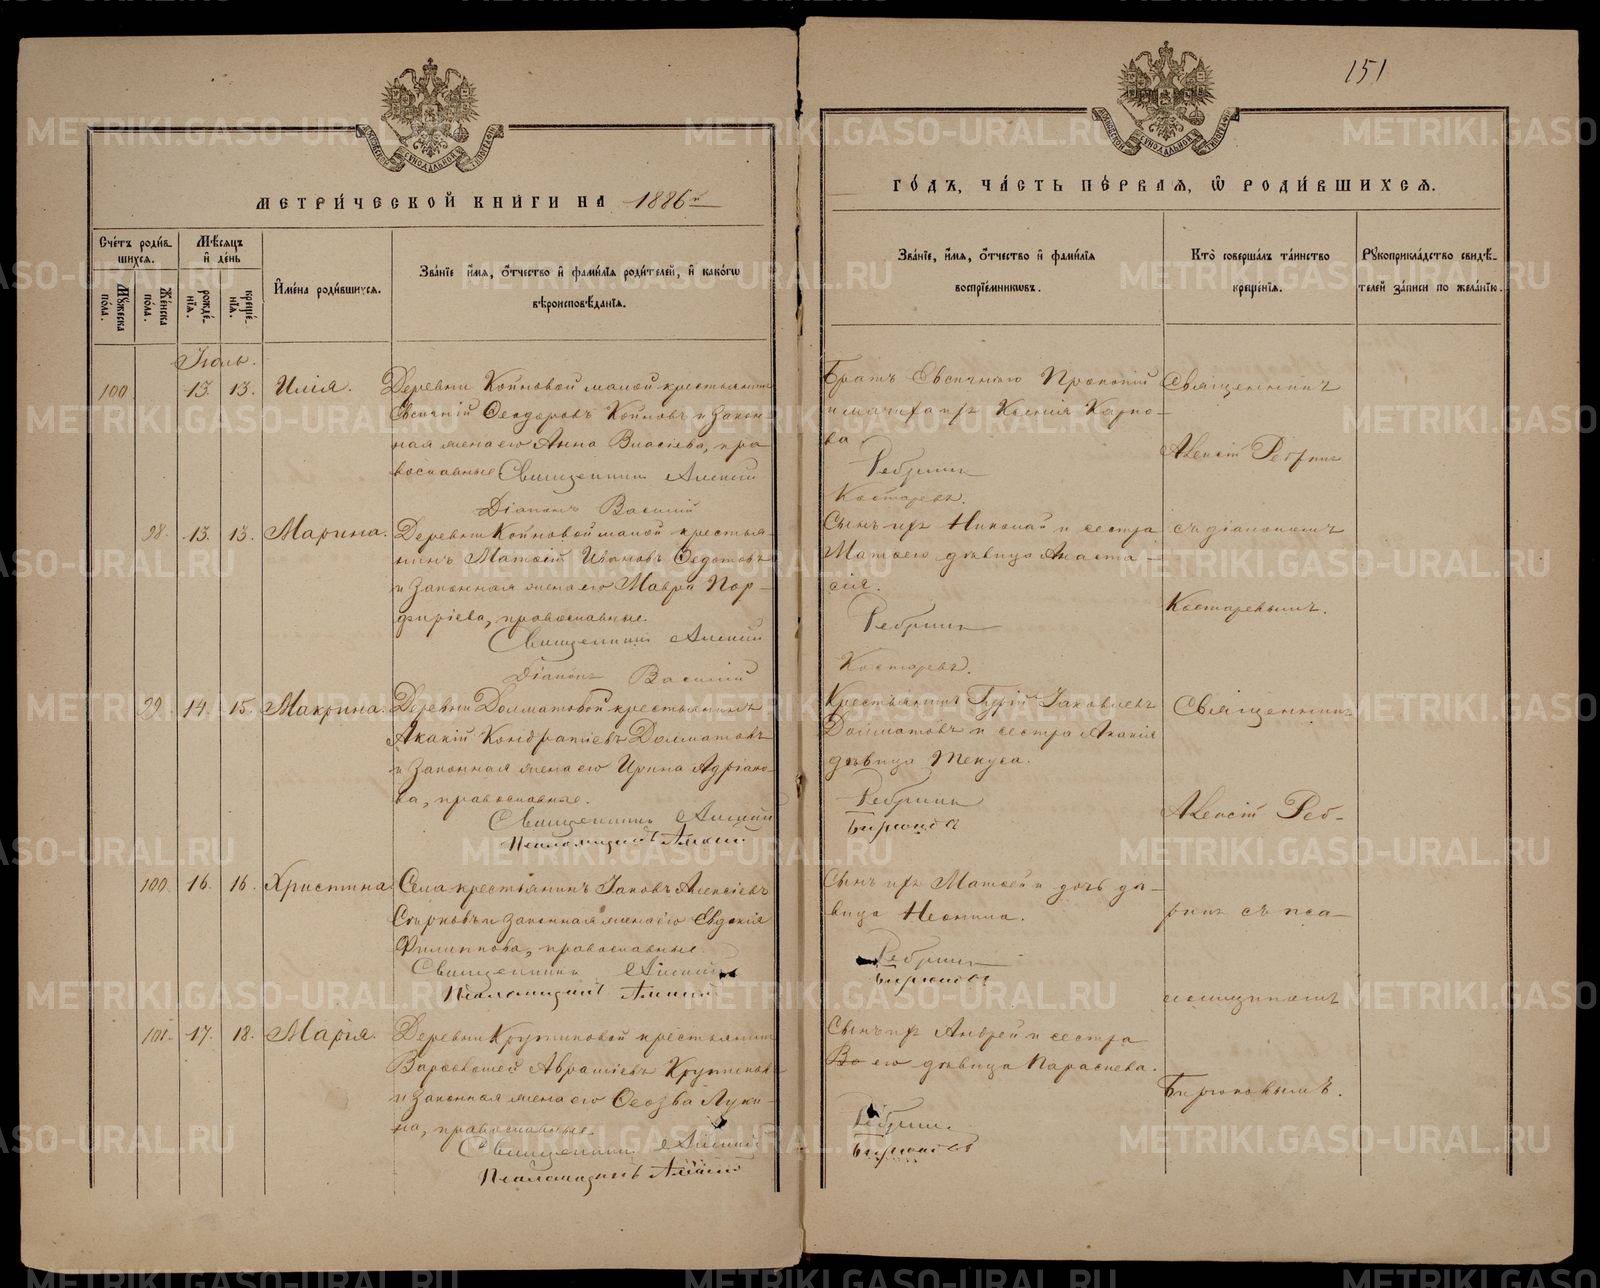 151
МЕТРИ́ЧЕСКОЙ КНИ́ГИ НА 1886й
ГО́ДЪ, ЧА́СТЬ ПЕ́РВАЯ, Ѡ РОДИ́ВШИХСЯ.
Сче́тъ роди́в-
шихся.
Мѣ́сяцъ
и҆ де́нь
Мꙋ́жеска
пола.
Же́нска
пола.
рожде́-
нїя.
креще́-
нїя.
И҆мена̀ роди́вшихся.
Зва́нїе и҆́мя, ѻ҆́тчество и҆ фами́лїя роди́телей, и҆ како́гѡ
вѣроисповѣ́данїя.
Зва́нїе, и҆́мя, ѻ҆́тчество и҆ фами́лїя
воспрїе́мниковъ.
Кто̀ соверша́лъ та́инство
креще́нїя.
Рꙋкоприкла́дство свидѣ́-
телей за́писи по жела́нїю.
Іюль.
100 13. 13. Илія.
Деревни Койновой малой крестьянинъ
Евсигній Ѳеодоровъ Койновъ и закон-
ная жена его Анна Власіева, пра
вославные. Священникъ Алексій
Діаконъ Василій
Братъ Евсигнія Прокопій
и мачиха ихъ Ксенія Карпо-
ва.
Ребринъ
Костаревъ.
Священникъ
Алексій Ребринъ
98. 13. 13. Марина.
Деревни Койновой малой крестья-
нинъ Матѳій Ивановъ Ѳедотовъ
и законная жена его Мавра Пор-
фиріева, православные.
Священникъ Алексій
Діаконъ Василій
Сынъ ихъ Николай и сестра
Матѳею дѣвица Анаста-
сія.
Ребринъ
Костаревъ.
съ діакономъ
Костаревымъ.
99. 14. 15. Макрина.
Деревни Долматовой крестьянинъ
Акакій Кондратіевъ Долматовъ
и законная жена его Ирина Адріано-
ва, православные.
Священникъ Алексій
Псаломщикъ Алексій
Крестьянинъ Гурій Іаковлевъ
Долматовъ и сестра Акакія
дѣвица Текуса.
Ребринъ
Бирюковъ
Священникъ
Алексій Реб-
100. 16. 16. Христина
Села крестьянинъ Іаковъ Алексіевъ
законная жена его Евдокія
Филиппова, православные.
Священникъ Алексій
Псаломщикъ Алексій
Сынъ ихъ Матѳей и дочь дѣ-
вица Неонила.
Ребринъ
Бирюковъ
ринъ съ пса-
ломщикомъ
101. 17. 18. Марія.
Деревни Крутиковой крестьянинъ
Варѳоломей Авраміевъ
и законная жена его Ѳеозва Луки-
на, православные.
Священникъ Алексій
Псаломщикъ Алексій
Сынъ ихъ Андрей и сестра
Во его дѣвица Параскева.
Ребринъ
Бирюковъ
Бирюковымъ.
METRIKI.GASO-URAL.RU